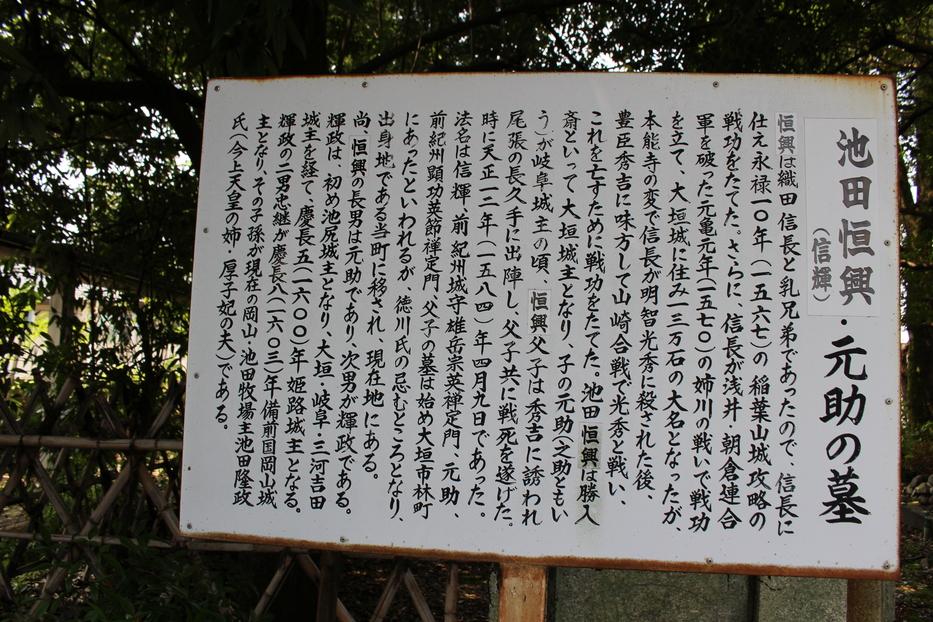 池田恒興・元助の墓
(信輝)
恒興は織田信長と乳兄弟であったので、信長に
仕え永禄一〇年(一五六七)の稲葉山城攻略の
戦功をたてた。さらに、信長が浅井・朝倉連合
軍を破った元亀元年(一五七〇)の姉川の戦いで戦功
を立て、大垣城に住み一三万石の大名となったが、
本能寺の変で信長が明智光秀に殺された後、
豊臣秀吉に味方して山崎合戦で光秀と戦い、
これを亡すために戦功をたてた。池田恒興は勝入
斎といって大垣城主となり、子の元助(之助ともい
う)が岐阜城主の頃、恒興父子は秀吉に誘われ
尾張の長久手に出陣し、父子共に戦死を遂げた。
時に天正一二年(一五八四)年四月九日であった。
法名は信輝・前紀州城守雄岳宗英禅定門、元助、
前紀州顕功英節禅定門、父子の墓は始め大垣市林町
にあったといわれるが、徳川氏の忌むところとなり、
出身地である当町に移され、現在地にある。
尚、恒興の長男は元助であり、次男が輝政である。
輝政は、初め池尻城主となり、大垣・岐阜・三河吉田
城主を経て、慶長五(一六〇〇)年姫路城主となる。
輝政の二男忠継が慶長八(一六〇三)年備前国岡山城
主となり、その子孫が現在の岡山・池田牧場主池田隆政
氏(今上天皇の姉・厚子妃の夫)である。